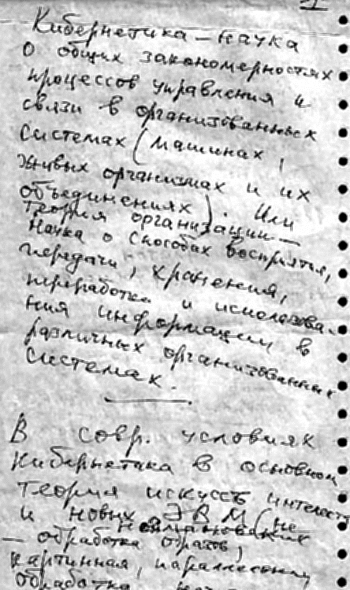 1
Кибернетика – наука
о общих закономерностях
процессов управления и
связи в организованных
системах (машинах,
живых организмах и их
объединениях). Или
Теория организации –
наука о способах восприятия,
передачи, хранения,
переработки и использова-
ния информации в
различных организованных
системах.
В совр. условиях
кибернетика в основном
теория искусств интеллект
и новых ЭВМ (не
неймановских
– обработка образов,
картинная, параллельная
обработка